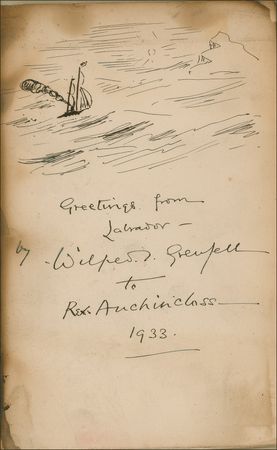 Greetings from
Labrador —
by Wilfred T. Grenfell
to
Rex. Auchincloss —
1933.